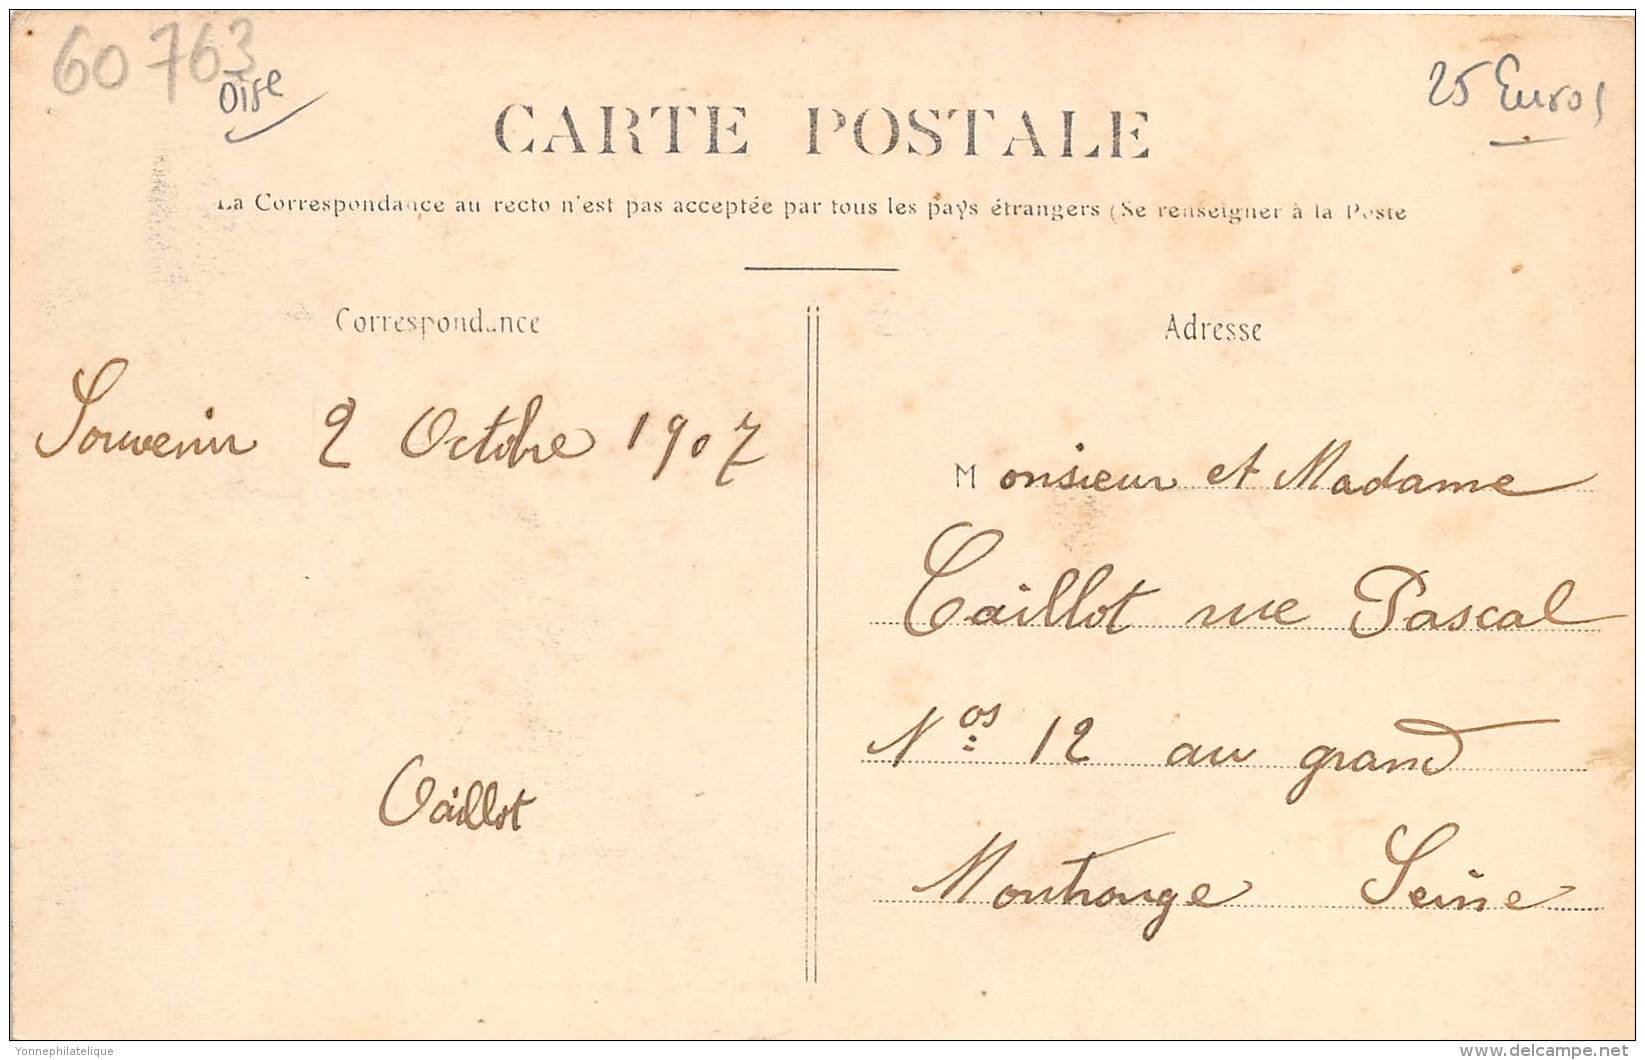 60 763
Oise
25 Euros
CARTE POSTALE
La Correspondance au recto n'est pas acceptée par tous les pays étrangers (Se renseigner à la Poste
Correspondance
Souvenir 2 Octobre 1907
Caillot
Adresse
Monsieur et Madame
Caillot rue Pascal
Nos 12 au grand
Montrouge Seine
Yonnephilatelique
delcampe.net